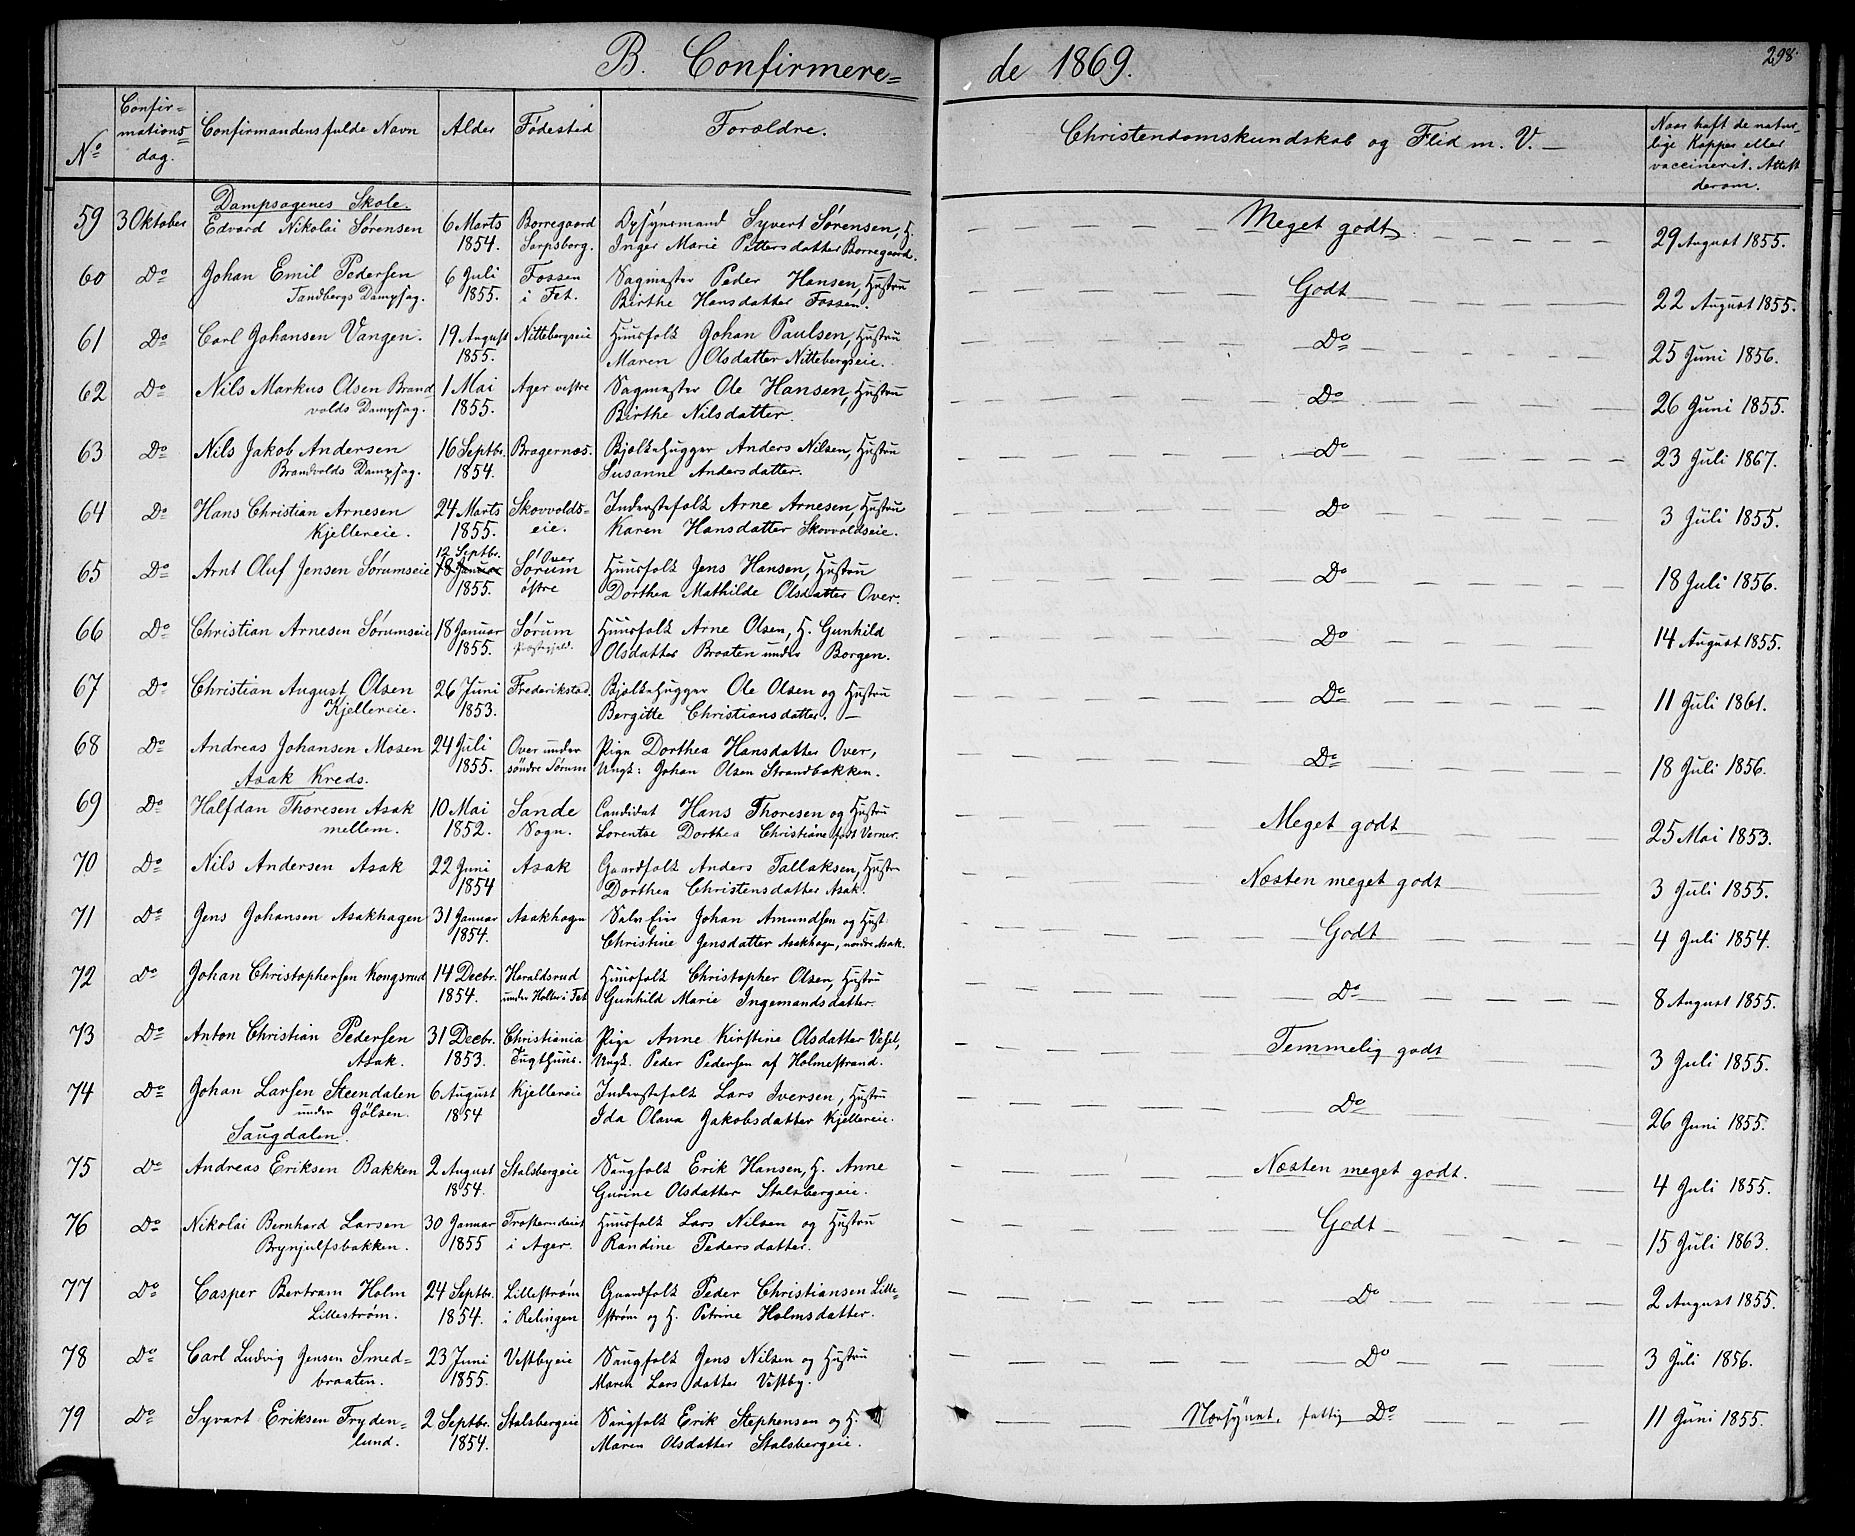 B. Confirmere=
de 1869.
298.
No
Confir=
mations
dag.
Confirmandens fulde Navn
Alder
Fødested
Forældre.
Christendomskundskab og Flid m. V.
Naar haft de natur-
lige Kopper eller
vaccinerit. Attest
derom.
Dampsagenes Skole.
59 3 Oktober Edvard Nikolai Sørensen 6 Marts Borregaard Opsynsmand Syvert Sørensen, H. Meget godt 29 August 1855.
1854. Sarpsborg. Inger Marie Pettersdatter Borregaard.
60 Do Johan Emil Pedersen 6 Juli Fossen Sagmester Peder Hansen, Hustru Godt 22 August 1855.
Tandbergs Dampsag. 1855. i Fet. Birthe Hansdatter Fossen.
61 Do Carl Johansen Vangen. 19 August Nittebergseie Huusfolk Johan Paulsen, Hustru Do 25 Juni 1856.
1855. Maren Olsdatter Nittebergseie.
62 Do Nils Markus Olsen Brand 1 Mai Ager vestre Sagmester Ole Hansen, Hustru Do 26 Juni 1855.
volds Dampsag. 1855. Birthe Nilsdatter.
63 Do Nils Jakob Andersen 16 Septbr. Bragernæs. Bjelkehugger Anders Nilsen, Hustru Do 23 Juli 1867.
Brandvolds Dampsag. 1854. Susanne Andersdatter.
64 Do Hans Christian Arnesen 24 Marts Skovvolds= Inderstefolk Arne Arnesen, Hustru Do 3 Juli 1855.
Kjellereie. 1855. eie. Karen Hansdatter Skovvoldseie.
12 Septbr. Over
65 Do Arnt Oluf Jensen Sørumseie 18 Januar Sørum Huusfolk Jens Hansen, Hustru Do 18 Juli 1856.
1855. østre Dorthea Mathilde Olsdatter Over.
66 Do Christian Arnesen Sørumseie 18 Januar Sørum Huusfolk Arne Olsen, H. Gunhild Do 14 August 1855.
1855. Præstegjeld. Olsdatter Braaten under Borgen.
67 Do Christian August Olsen 26 Juni Frederikstad. Bjelkehugger Ole Olsen og Hustru Do 11 Juli 1861.
Kjellereie. 1853. Bergitte Christiansdatter.
68 Do Andreas Johansen Mosen 24 Juli Over under Pige Dorthea Hansdatter Over, Do 18 Juli 1856.
1855. søndre Sørum Ungk: Johan Olsen Strandbakken.
Asak Kreds.
69 Do Halfdan Thoresen Asak 10 Mai Sande Candidat Hans Thoresen og Hustru Meget godt 25 Mai 1853.
mellem. 1852. Sogn. Lorentse Dorthea Christiane født Verner.
70 Do Nils Andersen Asak 22 Juni Asak Gaardfolk Anders Tallaksen, Hustr Næsten meget godt 3 Juli 1855.
1854 Dorthea Christensdatter Asak.
71 Do Jens Johansen Asakhagen 31 Januar Asakhagen Selveier Johan Amundsen og Hust. Godt 4 Juli 1854.
1854. Christine Jensdatter Asakhagen, nordre Asak.
72 Do Johan Christophersen Kongsrud 14 Decbr. Haraldsrud Huusfolk Christopher Olsen, Hustru Do 8 August 1855.
1854. under Holter i Fet Gunhild Marie Ingemandsdatter.
73 Do Anton Christian Pedersen 31 Decbr. Christiania Pige Anne Kirstine Olsdatter Vesel, Temmelig godt 3 Juli 1855.
Asak. 1853. Tugthuus. Ungk. Peder Pedersen af Holmestrand.
74 Do Johan Larsen Steendalen 6 August Kjellereie Inderstefolk Lars Iversen, Hustru Do 26 Juni 1855.
under Gölsen. 1854 Ida Olava Jakobsdatter Kjellereie.
Saugdalen.
75 Do Andreas Eriksen Bakken 2 August Stalsbergeie Saugfolk Erik Hansen, H. Anne Næsten meget godt. 4 Juli 1855.
1854. Gurine Olsdatter Stalsbergeie.
76 Do Nikolai Bernhard Larsen 30 Januar Trosterudeiet Huusfolk Lars Nilsen og Hustru Godt 15 Juli 1863.
Brynjulfsbakken. 1855 i Ager. Randine Pedersdatter.
77 Do Casper Bertram Holm 24 Septbr. Lillestrøm Gaardfolk Peder Christiansen Lille= Do 2 August 1855.
Lillestrøm. 1854. i Relingen strøm og H. Petrine Holmsdatter.
78 Do Carl Ludvig Jensen Smed= 23 Juni Vestbyeie Saugfolk Jens Nilsen og Hustru Do 3 Juli 1856.
braaten. 1855. Maren Larsdatter Vestby.
79 Do Syvart Eriksen Fryden= 2 Septbr. Stalsbergeie Saugfolk Erik Stephensen og H. Nærsynet, fattig Do 11 Juni 1855.
lund. 1854. Maren Olsdatter Stalsbergeie.